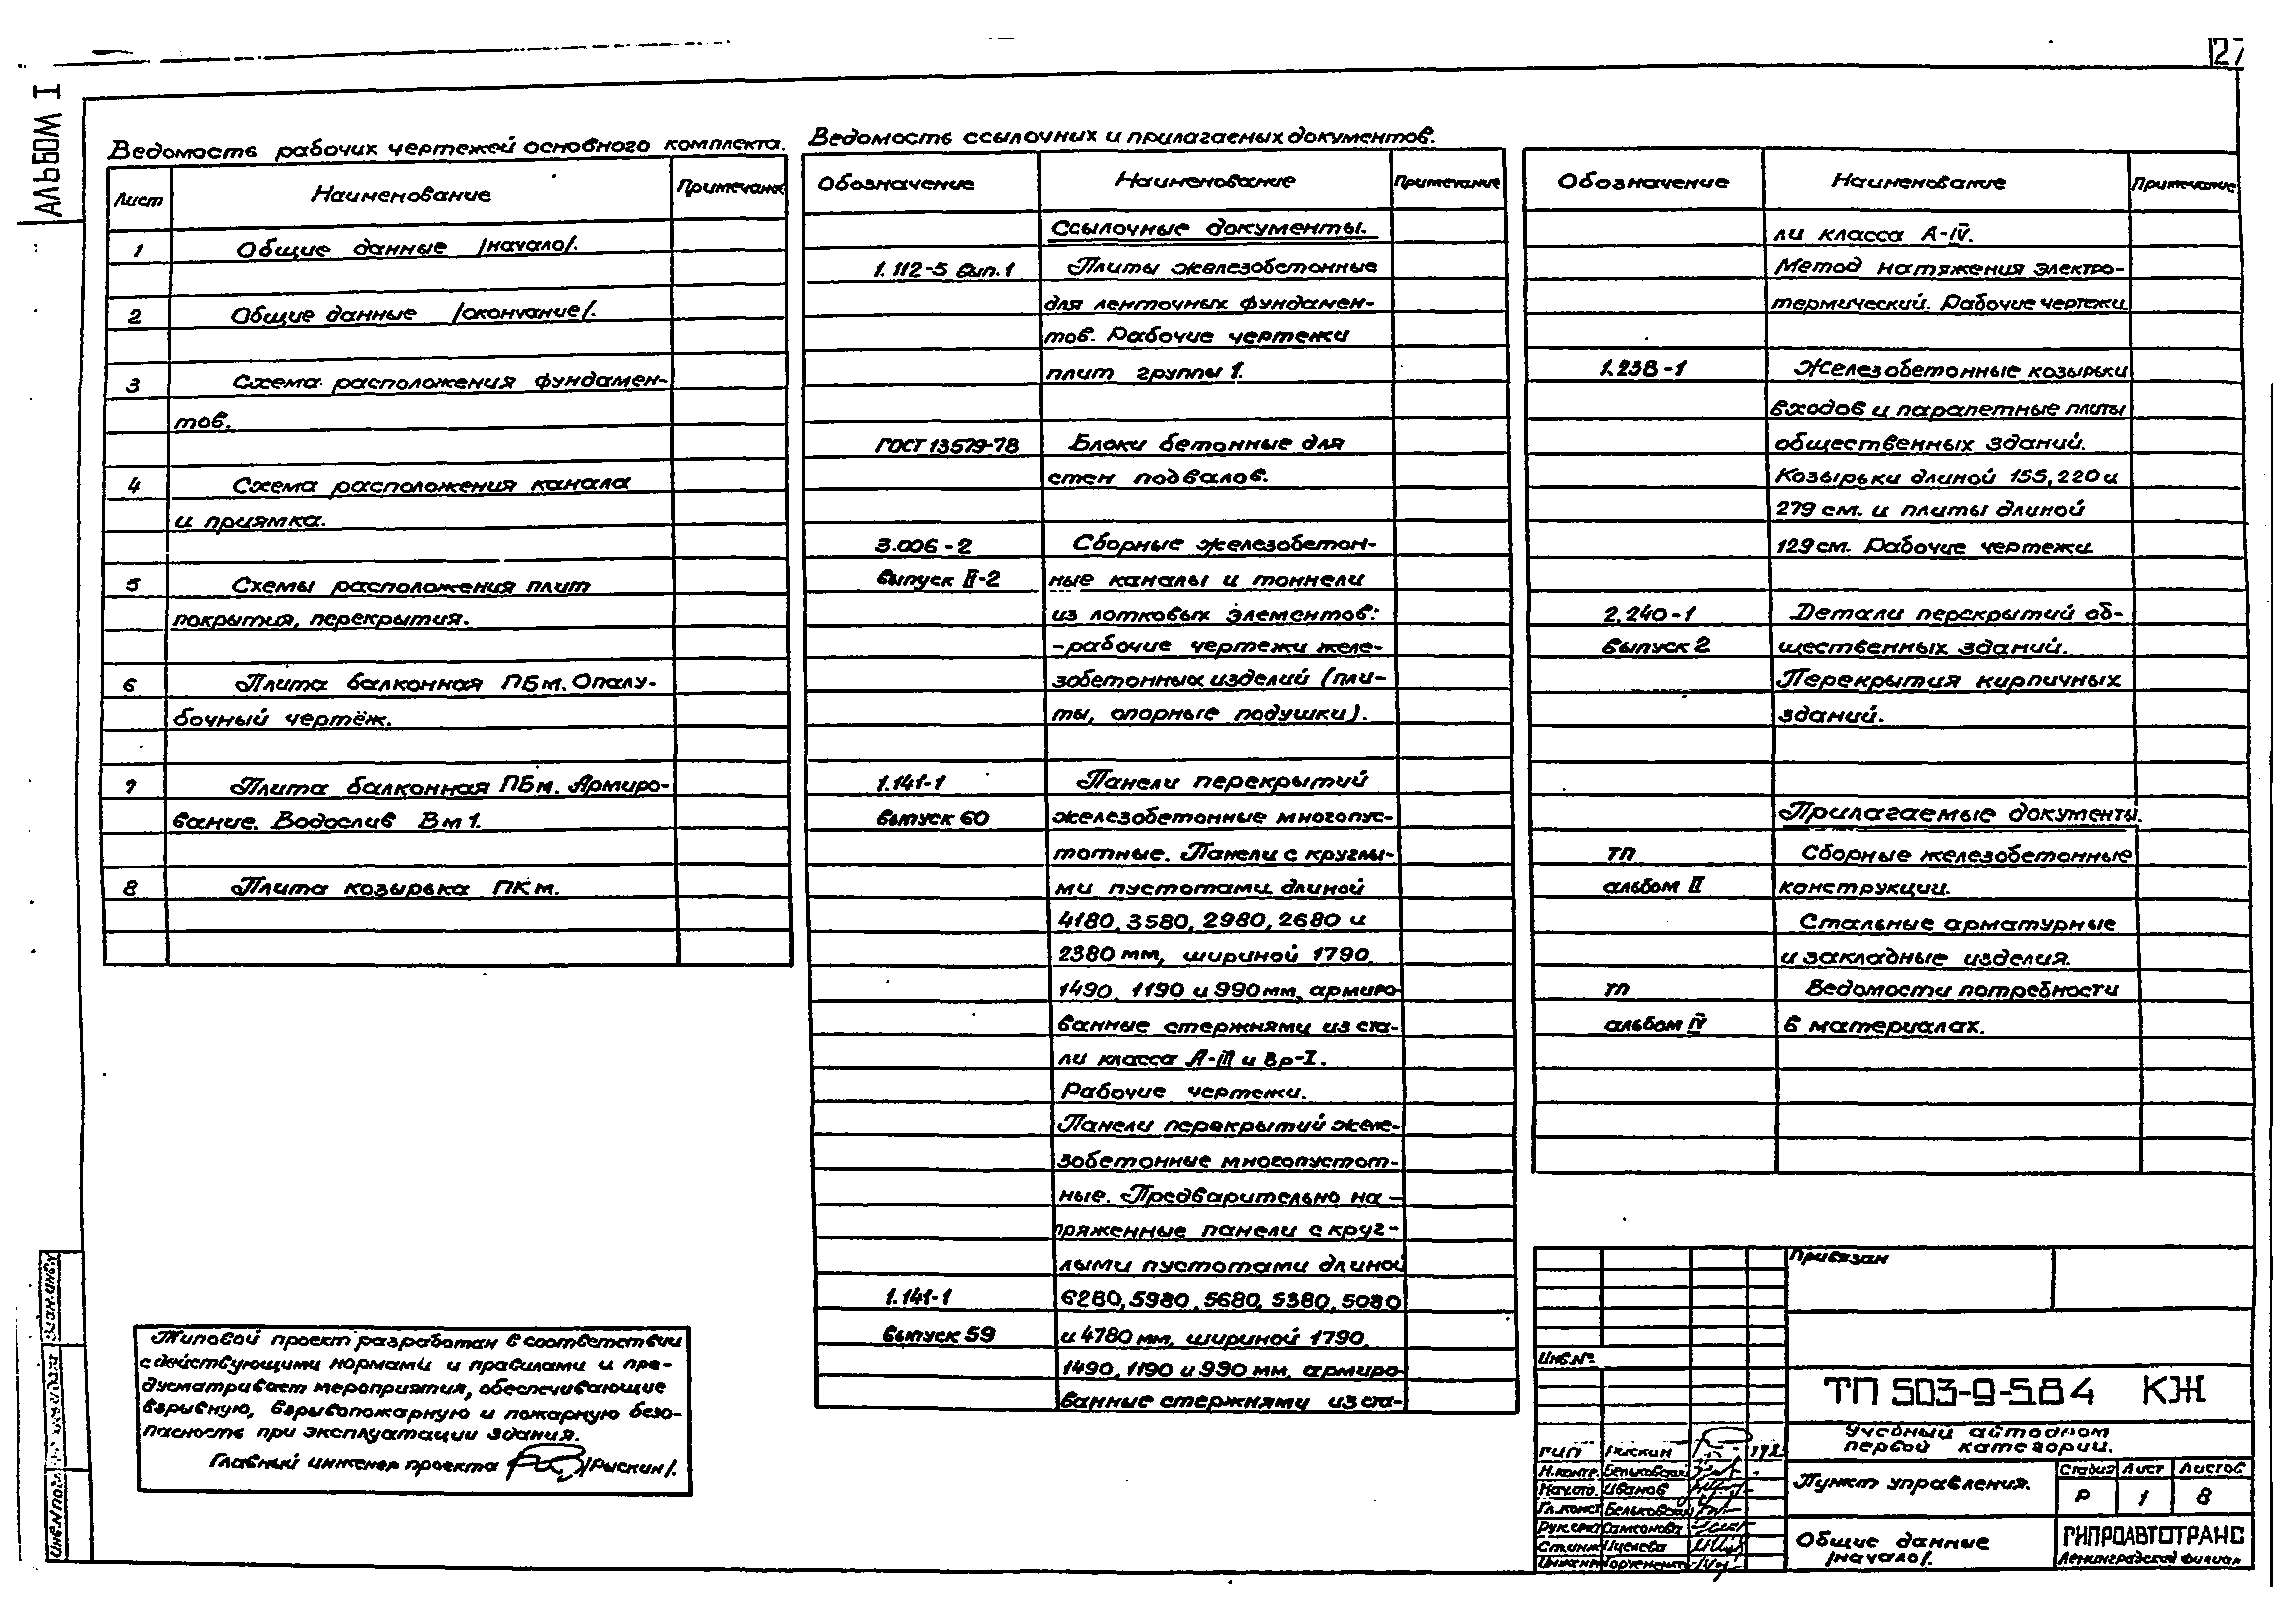 27
АЛЬБОМ I
Ведомость рабочих чертежей основного комплекта.
Лист Наименование Примечание
1 Общие данные /начало/.
2 Общие данные /окончание/.
3 Схема расположения фундамен-
тов.
4 Схема расположения канала
и приямка.
5 Схемы расположения плит
покрытия, перекрытия.
6 Плита балконная ПБм. Опалу-
бочный чертёж.
7 Плита балконная ПБм. Армиро-
вание. Водослив Вм1.
8 Плита козырька ПКм.
Ведомость ссылочных и прилагаемых документов.
Обозначение Наименование Примечание
Ссылочные документы.
1.112-5 вып.1 Плиты железобетонные
для ленточных фундамен-
тов. Рабочие чертежи
плит группы 1.
ГОСТ 13579-78 Блоки бетонные для
стен подвалов.
3.006-2 Сборные железобетон-
выпуск II-2 ные каналы и тоннели
из лотковых элементов:
-рабочие чертежи желе-
зобетонных изделий (пли-
ты, опорные подушки).
1.141-1 Панели перекрытий
выпуск 60 железобетонные многопус-
тотные. Панели с круглы-
ми пустотами длиной
4180, 3580, 2980, 2680 и
2380 мм, шириной 1790,
1490, 1190 и 990 мм, армиро-
ванные стержнями из ста-
ли класса А-III и Вр-I.
Рабочие чертежи.
Панели перекрытий желе-
зобетонные многопустот-
ные. Предварительно на-
пряженные панели с круг-
лыми пустотами длиной
1.141-1 6280, 5980, 5680, 5380, 5080
выпуск 59 и 4780 мм, шириной 1790,
1490, 1190 и 990 мм, армиро-
ванные стержнями из ста-
Обозначение Наименование Примечание
ли класса А-IV.
Метод натяжения электро-
термический. Рабочие чертежи
1.238-1 Железобетонные козырьки
входов и парапетные плиты
общественных зданий.
Козырьки длиной 155, 220 и
279 см. и плиты длиной
129 см. Рабочие чертежи
2.240-1 Детали перекрытий об-
выпуск 2 щественных зданий.
Перекрытия кирпичных
зданий.
Прилагаемые документы.
ТП Сборные железобетонные
альбом II конструкции.
Стальные арматурные
и закладные изделия.
ТП Ведомости потребности
альбом IV в материалах.
Типовой проект разработан в соответствии
с действующими нормами и правилами и пре-
дусматривает мероприятия, обеспечивающие
взрывную, взрывопожарную и пожарную безо-
пасность при эксплуатации здания.
Главный инженер проекта /Рыскин/.
Взам.инв.№
Инв.№ подл.
Привязан
Инв.№
ТП 503-9-5.84 КЖ
Учебный автодром
первой категории.
ГИП Рыскин
Н.контр. Бельковский
Нач.отд. Иванов
Гл.конст Бельковский
Рук.сект Самсонова
Ст.инж
Инжен
Пункт управления.
Стадия Лист Листов
Р 1 8
Общие данные
/начало/.
ГИПРОАВТОТРАНС
Ленинградский филиал